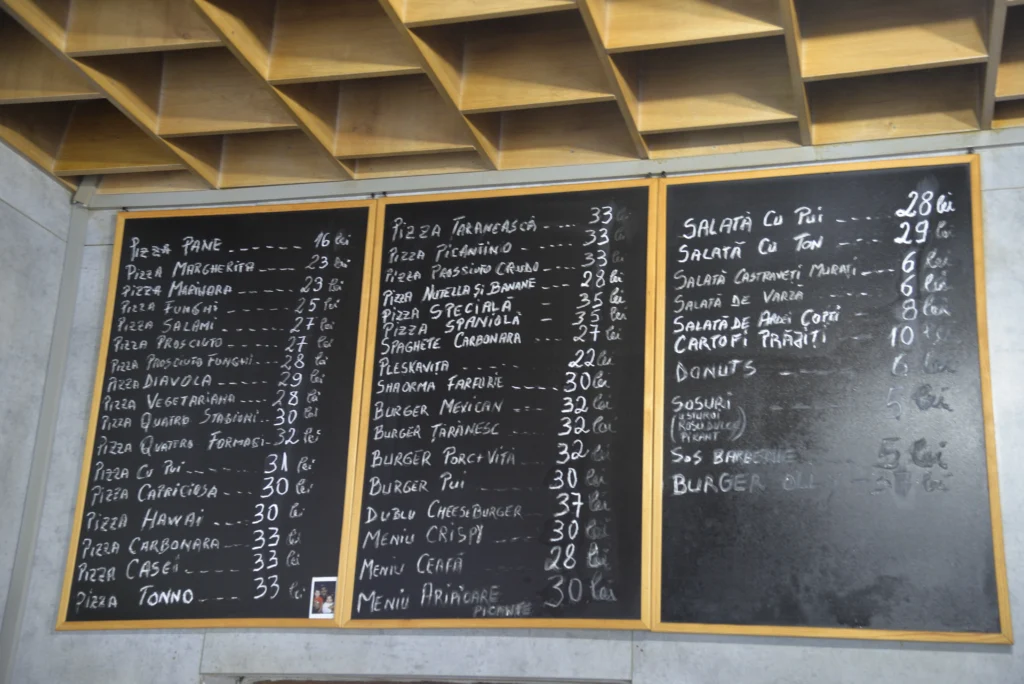 PIZZA PANE ------ 16 lei
PIZZA MARGHERITA ---- 23 lei
PIZZA MARINARA ---- 23 lei
PIZZA FUNGHI ---- 25 lei
PIZZA SALAMI ---- 27 lei
PIZZA PROSCIUTO ---- 27 lei
PIZZA PROSCIUTO FUNGHI --- 28 lei
PIZZA DIAVOLA ---- 29 lei
PIZZA VEGETARIANA ---- 28 lei
PIZZA QUATRO STAGIONI -- 30 lei
PIZZA QUATRO FORMAGI -- 32 lei
PIZZA CU PUI ---- 31 lei
PIZZA CAPRICIOSA ---- 30 lei
PIZZA HAWAI ---- 30 lei
PIZZA CARBONARA --- 33 lei
PIZZA CASEI ---- 33 lei
PIZZA TONNO ---- 33 lei
PIZZA ȚARANEASCĂ ---- 33 lei
PIZZA PICANTINO ---- 33 lei
PIZZA PROSSIUTO CRUDO --- 33 lei
PIZZA NUTELLA ȘI BANANE --- 28 lei
PIZZA SPECIALĂ - 35 lei
PIZZA SPANIOLĂ - 35 lei
SPAGHETE CARBONARA --- 27 lei
PLESKAVITA ---- 22 lei
SHAORMA FARFURIE ---- 30 lei
BURGER MEXICAN --- 32 lei
BURGER ȚĂRĂNESC --- 32 lei
BURGER PORC+VITĂ --- 32 lei
BURGER PUI --- 30 lei
DUBLU CHEESEBURGER --- 37 lei
MENIU CRISPY --- 30 lei
MENIU CEAFĂ --- 28 lei
MENIU ARIPIOARE 30 lei
PICANTE
SALATĂ CU PUI ---- 28 lei
SALATĂ CU TON ---- 29 lei
SALATĂ CASTRAVEȚI MURAȚI --- 6 lei
SALATĂ DE VARZĂ ---- 6 lei
SALATĂ DE ARDEI COPȚI ---- 8 lei
CARTOFI PRĂJIȚI ---- 10 lei
DONUTS ---- 6 lei
SOSURI 5 lei
(USTUROI
ROȘU DULCE
PICANT)
SOS BARBEQUE 5 lei
BURGER lei